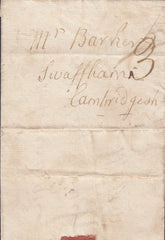 Mr Barker
Swaffham
Cambridgesh
3